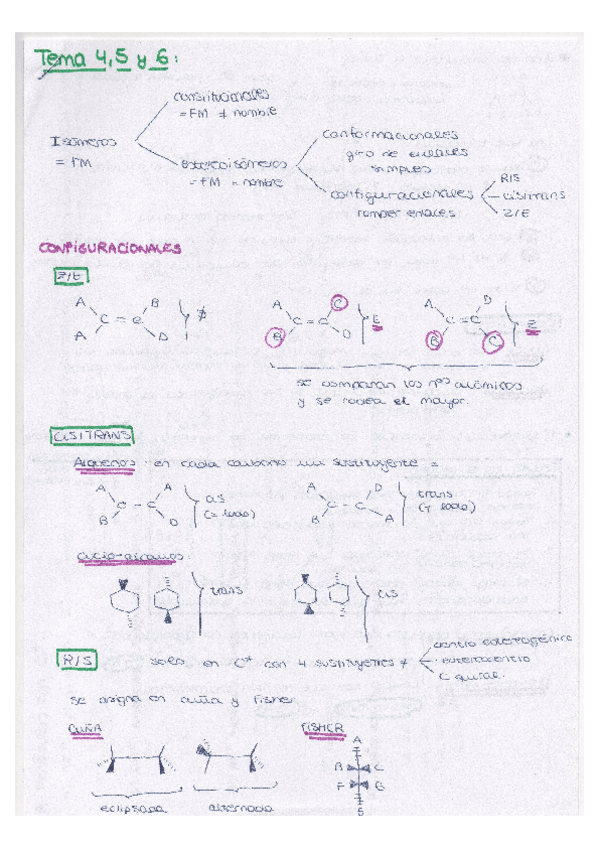 Tema 4, 5 y 6:
constitucionales
= FM ≠ nombre
Isómeros
= FM
estereoisómeros
= FM = nombre
conformacionales
giro de enlaces
simples
configuracionales
romper enlaces
R/S
cis/trans
Z/E
CONFIGURACIONALES
Z/E
A B
C = C
A D
A C
C = C
B D
E
A D
C = C
B C
Z
se comparan los nºs atómicos
y se rodea el mayor.
CIS/TRANS
Alquenos: en cada carbono un sustituyente =
A A
C - C
B D
cis
(= lado)
A D
C - C
B A
trans
(≠ lado)
Ciclo-alcanos
trans
cis
R/S
solo en C* con 4 sustituyentes ≠
centro estereogénico
estereocentro
C quiral.
se asigna en cuña y Fisher.
CUÑA
FISHER
A
B C
F G
S
eclipsada
alternada